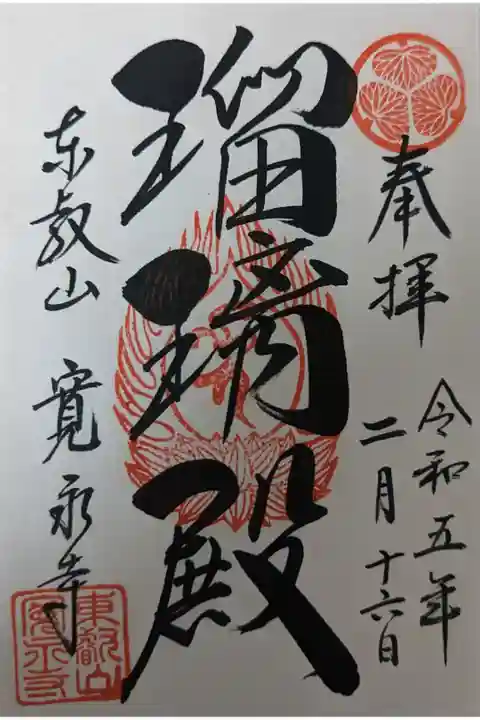 奉拝
令和五年
二月十六日
瑠璃殿
東叡山 寛永寺
東叡山
寛永寺